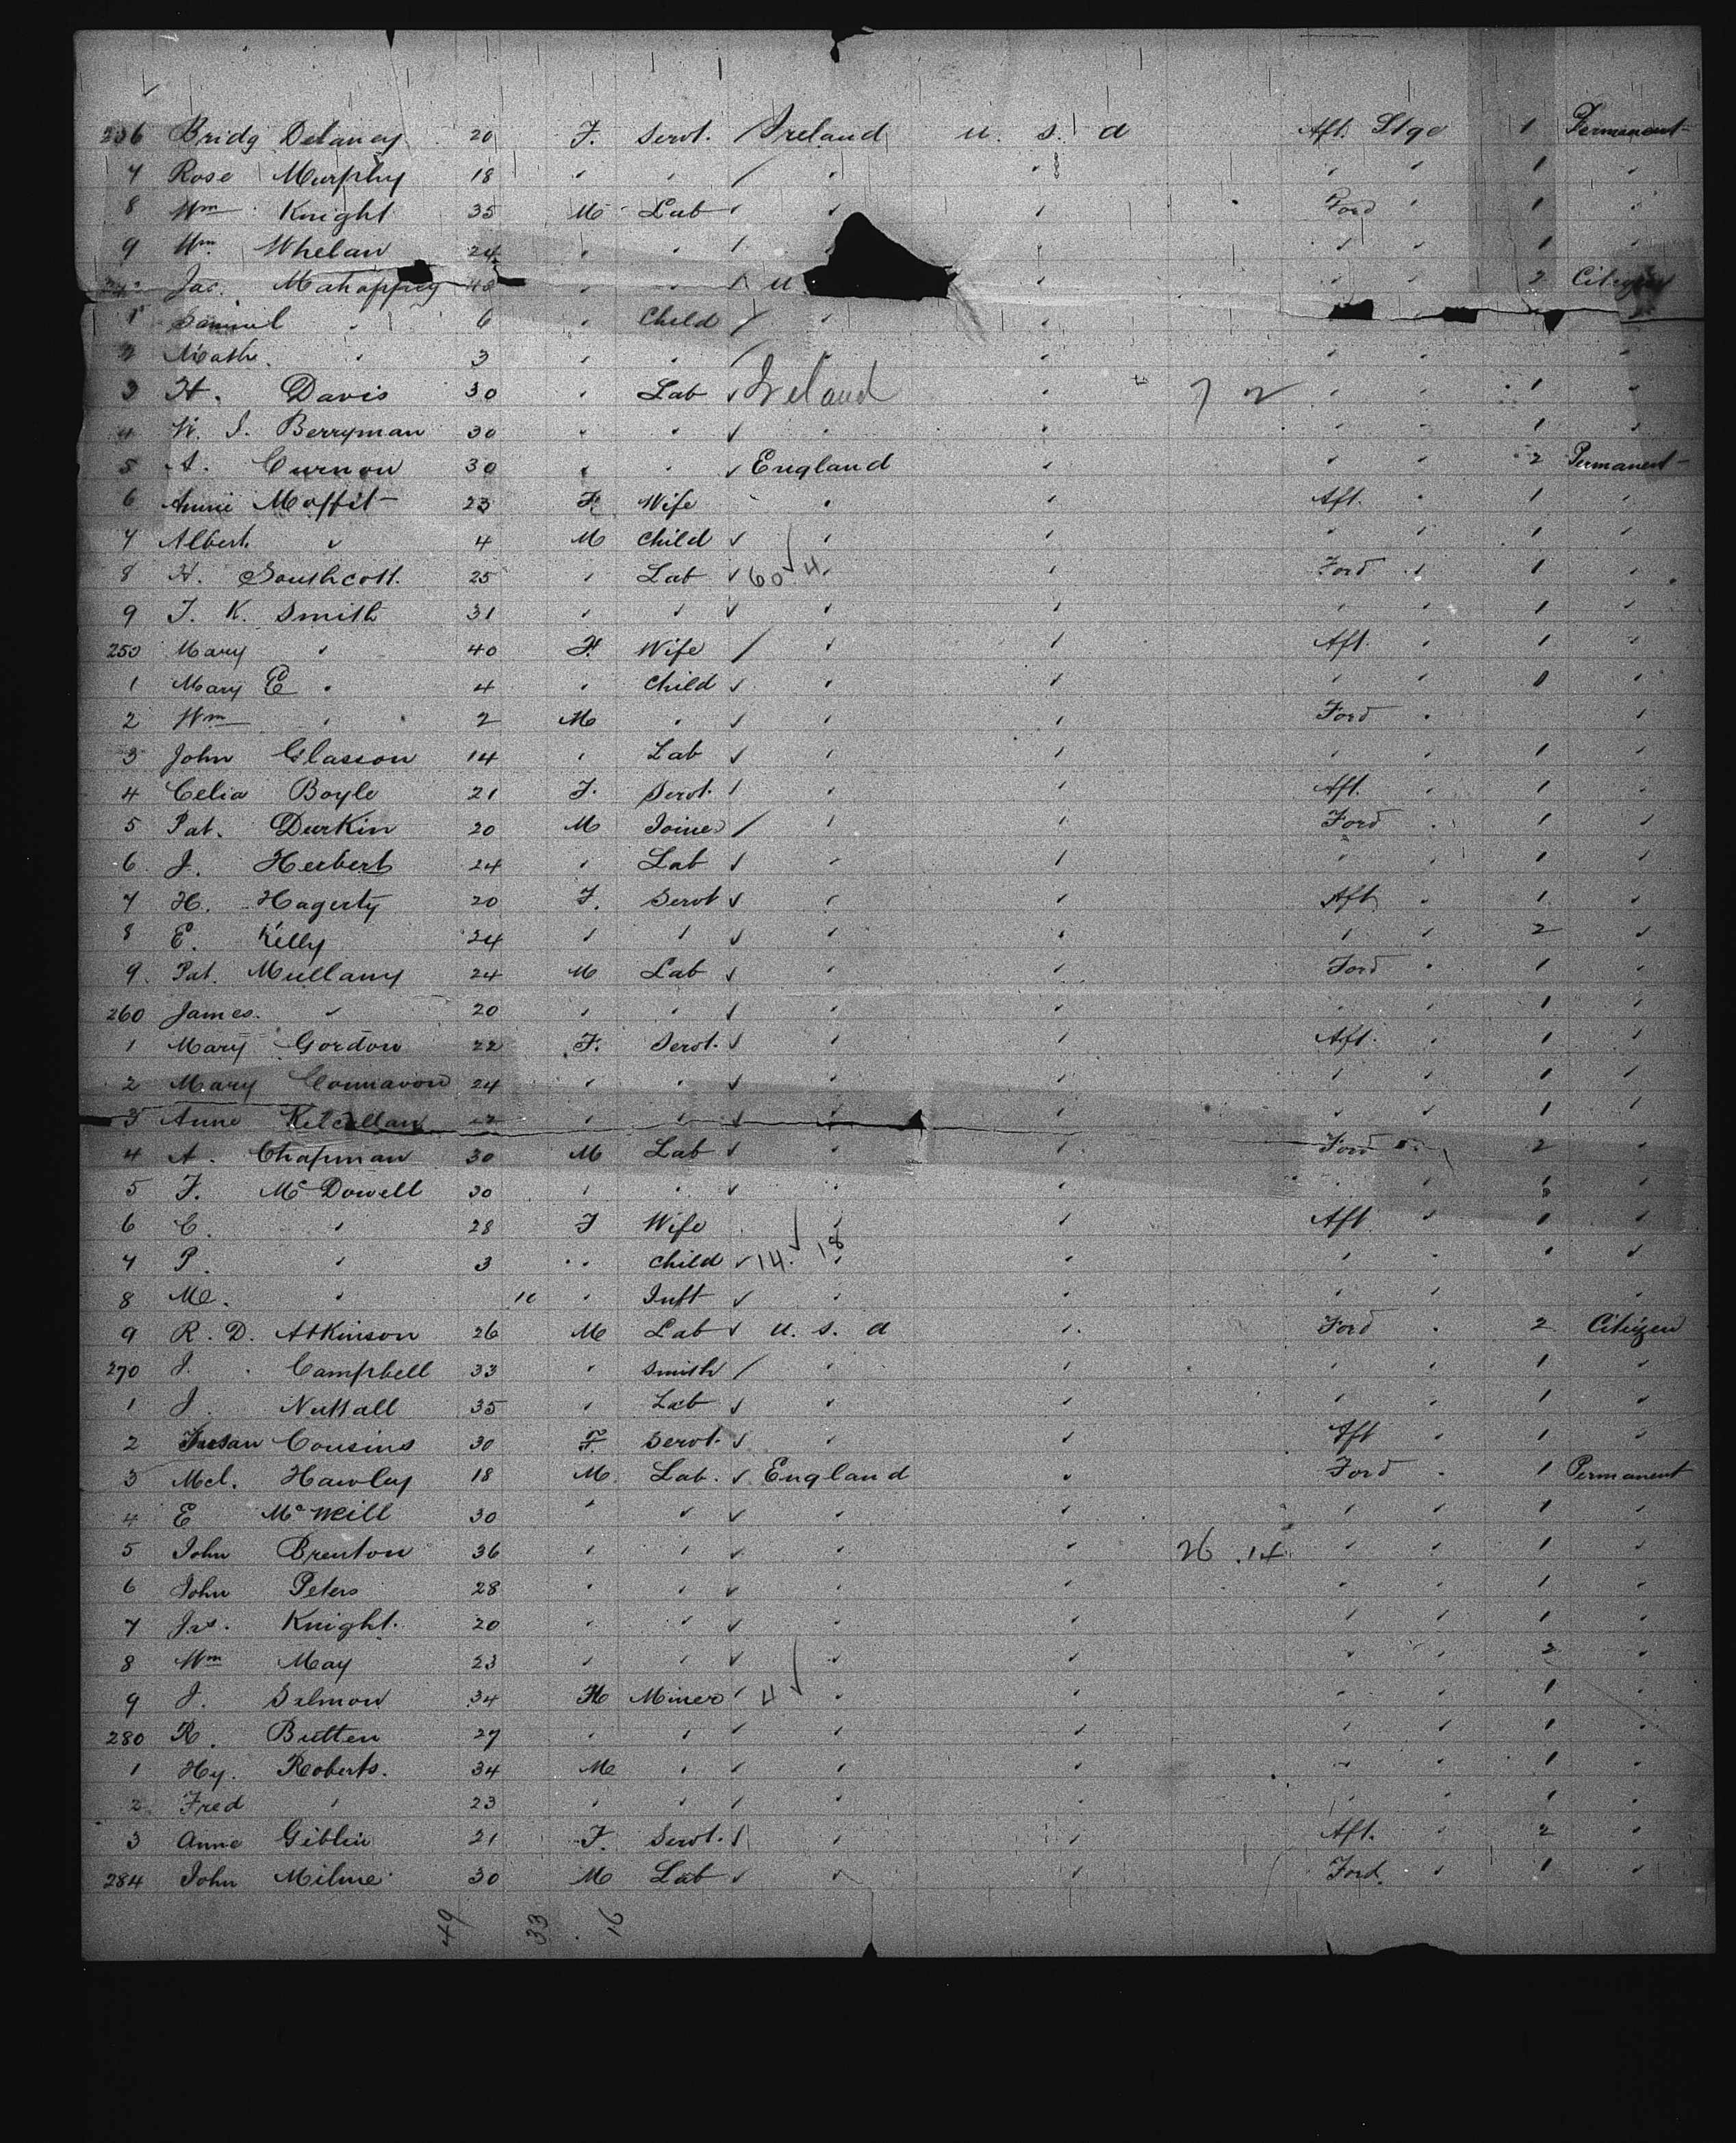 236 Bridg Delaney 20 F. Servt. / Ireland U. S. A Aft. Stge 1 Permanent
7 Rose Murphy 18 " " / " " " " 1 "
8 Wm Knight 35 M Lab " " " Ford " 1 "
9 Wm Whelan 24 " " / " " " 1 "
Jas. Mahaffey 48 " " / U " " " 2 Citizen
1 Samuel " 6 " Child / " "
2 Math. " 3 " " / " " " " "
3 H. Davis 30 " Lab ✓ Ireland " 7 2 " " 1 "
4 W. J. Berryman 30 " " ✓ " " " " 1 "
5 A. Curnow 30 " " ✓ England " " " 2 Permanent
6 Annie Moffit 23 F. Wife " " Aft. " 1 "
7 Albert " 4 M Child ✓ ✓ " " " " 1 "
8 H. Southcott. 25 " Lab ✓ 60 4 " " Ford " 1 "
9 T. K. Smith 31 " " ✓ " " " " 1 "
250 Mary " 40 F. Wife / " " Aft. " 1 "
1 Mary E " 4 " Child ✓ " " " " 1 "
2 Wm " 2 M " ✓ " " Ford " "
3 John Glasson 14 " Lab ✓ " " " " 1 "
4 Celia Boyle 21 F. Servt. / " " Aft. " 1 "
5 Pat. Durkin 20 M Joiner / " " Ford " 1 "
6 J. Herbert 24 " Lab ✓ " " " " 1 "
7 H. Hagerty 20 F. Servt ✓ " " Aft " 1 "
8 E. Kelly 24 " " ✓ " " " " 2 "
9. Pat. Mullany 24 M Lab ✓ " " Ford " 1 "
260 James. " 20 " " ✓ " " " " 1 "
1 Mary Gordon 22 F. Servt. ✓ " " Aft. " 1 "
2 Mary 24 " " ✓ " " " " 1 "
3 Anne " " ✓ " " " " 1 "
4 A. Chapman 30 M Lab ✓ " " Ford " 2 "
5 F. McDowell 30 " " ✓ " " " " 1 "
6 C. " 28 F Wife ✓ " " Aft " 1 "
7 P. " 3 " Child ✓ 14. 18 " " " " " "
8 M. " 10 " Inft ✓ " " " " "
9 R. D. Atkinson 26 M Lab ✓ U. S. A " Ford " 2 Citizen
270 J. Campbell 33 " Smith / " " " " 1 "
1 J. Nuttall 35 " Lab ✓ " " " " 1 "
2 Susan Cousins 30 F. Servt. ✓ " " Aft " 1 "
3 Mcl. Hawley 18 M. Lab. ✓ England " Ford " 1 Permanent
4 E McNeill 30 " " ✓ " " " " 1 "
5 John Brenton 36 " " ✓ " " 26 . 14 " " 1 "
6 John Peters 28 " " ✓ " " " " 1 "
7 Jas. Knight. 20 " " ✓ " " " " 1 "
8 Wm May 23 " " ✓ ✓ " " " " 2 "
9 J. Salmon 34 M Miner " 4 " " " " 1 "
280 R. Butten 27 " " " " " " " 1 "
1 Hy. Roberts. 34 M " " " " " " 1 "
2 Fred " 23 " " " " " " " 1 "
3 Anne Giblin 21 F. Servt. ✓ " " Aft. " 2 "
284 John Milne 30 M Lab ✓ " " Ford. " 1 "
49 33 . 16